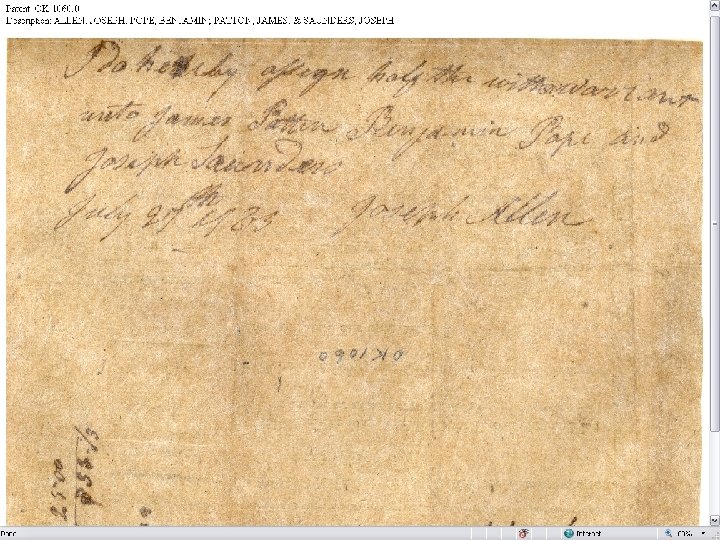 Patent: OK 1060.0
Description: ALLEN, JOSEPH; POPE, BENJAMIN; PATTON, JAMES; & SAUNDERS, JOSEPH
I do hereby assign half the within warrant
unto James Patten Benjamin Pope and
Joseph Saunders
July 1783 Joseph Allen
OK1060
Done
Internet